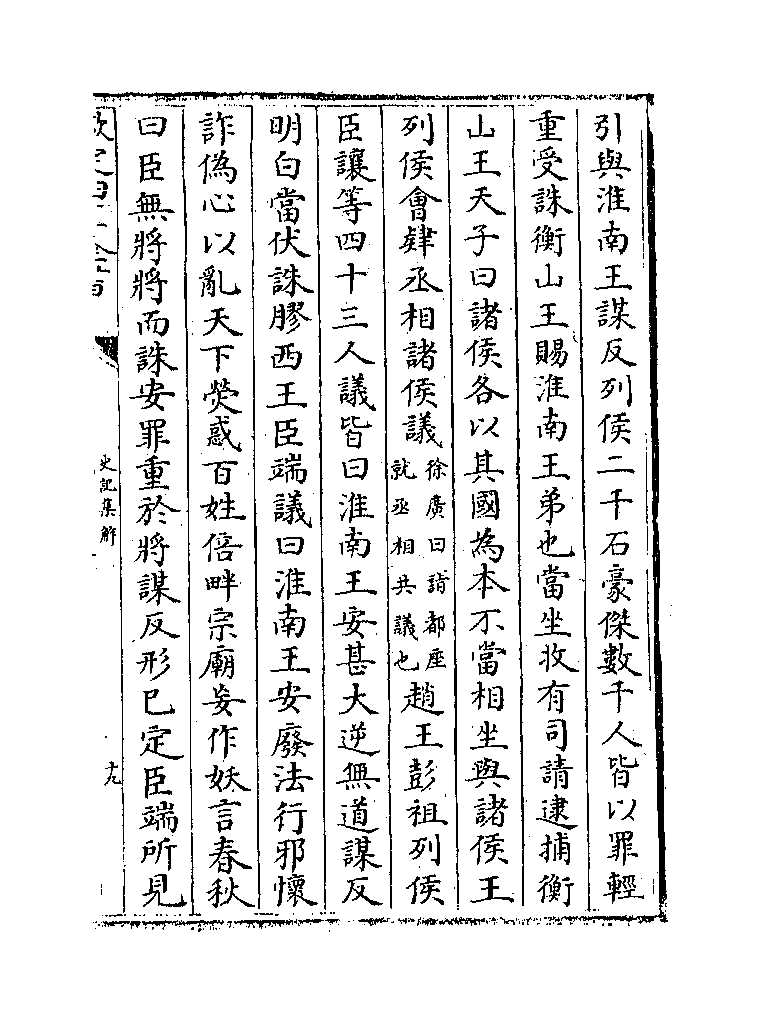 引與淮南王謀反列侯二千石豪傑數千人皆以罪輕
重受誅衡山王賜淮南王弟也當坐收有司請逮捕衡
山王天子曰諸侯各以其國為本不當相坐與諸侯王
列侯會肄丞相諸侯議徐廣曰詣都座就丞相共議也趙王彭祖列侯
臣讓等四十三人議皆曰淮南王安甚大逆無道謀反
明白當伏誅膠西王臣端議曰淮南王安廢法行邪懷
詐偽心以亂天下熒惑百姓倍畔宗廟妄作妖言春秋
曰臣無將將而誅安罪重於將謀反形已定臣端所見
史記集解
十九